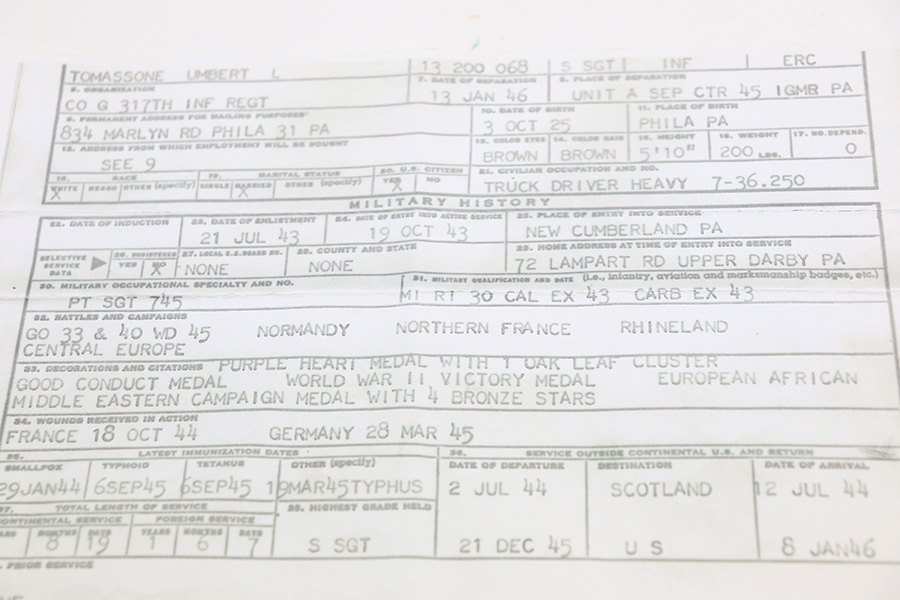 TOMASSONE UMBERT L 13 200 068 S SGT INF ERC
5. ORGANIZATION 7. DATE OF SEPARATION 8. PLACE OF SEPARATION
CO G 317TH INF REGT 13 JAN 46 UNIT A SEP CTR 45 IGMR PA
9. PERMANENT ADDRESS FOR MAILING PURPOSES 10. DATE OF BIRTH 11. PLACE OF BIRTH
834 MARLYN RD PHILA 31 PA 3 OCT 25 PHILA PA
12. ADDRESS FROM WHICH EMPLOYMENT WILL BE SOUGHT 13. COLOR EYES 14. COLOR HAIR 15. HEIGHT 16. WEIGHT 17. NO. DEPEND.
SEE 9 BROWN BROWN 5'10" 200 LBS. 0
18. RACE 19. MARITAL STATUS 20. U.S. CITIZEN 21. CIVILIAN OCCUPATION AND NO.
WHITE NEGRO OTHER (specify) SINGLE MARRIED OTHER (specify) YES NO
X X X TRUCK DRIVER HEAVY 7-36.250
MILITARY HISTORY
22. DATE OF INDUCTION 23. DATE OF ENLISTMENT 24. DATE OF ENTRY INTO ACTIVE SERVICE 25. PLACE OF ENTRY INTO SERVICE
21 JUL 43 19 OCT 43 NEW CUMBERLAND PA
SELECTIVE SERVICE DATA 26. REGISTERED 27. LOCAL S.S. BOARD NO. 28. COUNTY AND STATE 29. HOME ADDRESS AT TIME OF ENTRY INTO SERVICE
YES NO X NONE NONE 72 LAMPART RD UPPER DARBY PA
30. MILITARY OCCUPATIONAL SPECIALTY AND NO. 31. MILITARY QUALIFICATION AND DATE (i.e., infantry, aviation and marksmanship badges, etc.)
PT SGT 745 M1 RI 30 CAL EX 43 CARB EX 43
32. BATTLES AND CAMPAIGNS
GO 33 & 40 WD 45 NORMANDY NORTHERN FRANCE RHINELAND
CENTRAL EUROPE
33. DECORATIONS AND CITATIONS PURPLE HEART MEDAL WITH 1 OAK LEAF CLUSTER
GOOD CONDUCT MEDAL WORLD WAR II VICTORY MEDAL EUROPEAN AFRICAN
MIDDLE EASTERN CAMPAIGN MEDAL WITH 4 BRONZE STARS
34. WOUNDS RECEIVED IN ACTION
FRANCE 18 OCT 44 GERMANY 28 MAR 45
35. LATEST IMMUNIZATION DATES 36. SERVICE OUTSIDE CONTINENTAL U.S. AND RETURN
SMALLPOX TYPHOID TETANUS OTHER (specify) DATE OF DEPARTURE DESTINATION DATE OF ARRIVAL
29JAN44 6SEP45 6SEP45 19MAR45TYPHUS 2 JUL 44 SCOTLAND 12 JUL 44
37. TOTAL LENGTH OF SERVICE 38. HIGHEST GRADE HELD
CONTINENTAL SERVICE FOREIGN SERVICE
MONTHS DAYS YEARS MONTHS DAYS
8 19 1 6 7 S SGT 21 DEC 45 U S 8 JAN46
PRIOR SERVICE